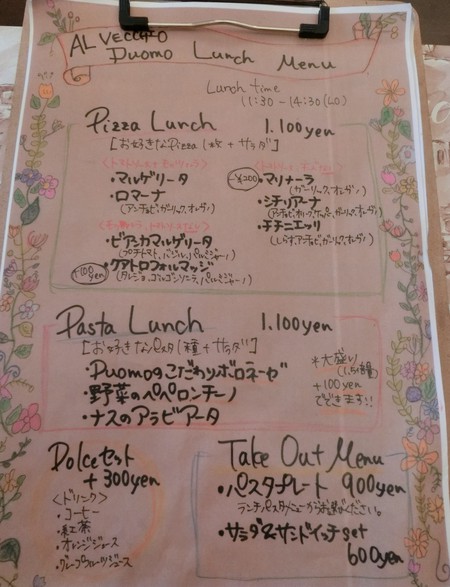 AL VECCHIO
Duomo Lunch Menu
Lunch time
11:30-14:30(LO)
Pizza Lunch 1.100yen
[お好きなPizza1枚+サラダ]
・マルゲリータ
・ロマーナ
(アンチョビ,ガーリック,オレガノ)
・マリナーラ
(ガーリック,オレガノ)
・シチリアーナ
・チチニエッリ
(しらす,アンチョビ,ガーリック,オレガノ)
・ビアンカマルゲリータ
(プチトマト,バジル,パルミジャーノ)
+100yen
・クアトロフォルマッジ
(タレジョ,ゴルゴンゾーラ,パルミジャーノ)
Pasta Lunch 1.100yen
[お好きなパスタ1種+サラダ]
・Duomoのこだわりボロネーゼ
・野菜のペペロンチーノ
・ナスのアラビアータ
*大盛り
(1.5倍量)
+100yen
でできます!!
Dolceセット
+300yen
<ドリンク>
・コーヒー
・紅茶
・オレンジジュース
・グレープフルーツジュース
Take Out Menu
・パスタプレート 900yen
ランチパスタメニューからお選びください。
・サラダ&サンドイッチset
600yen